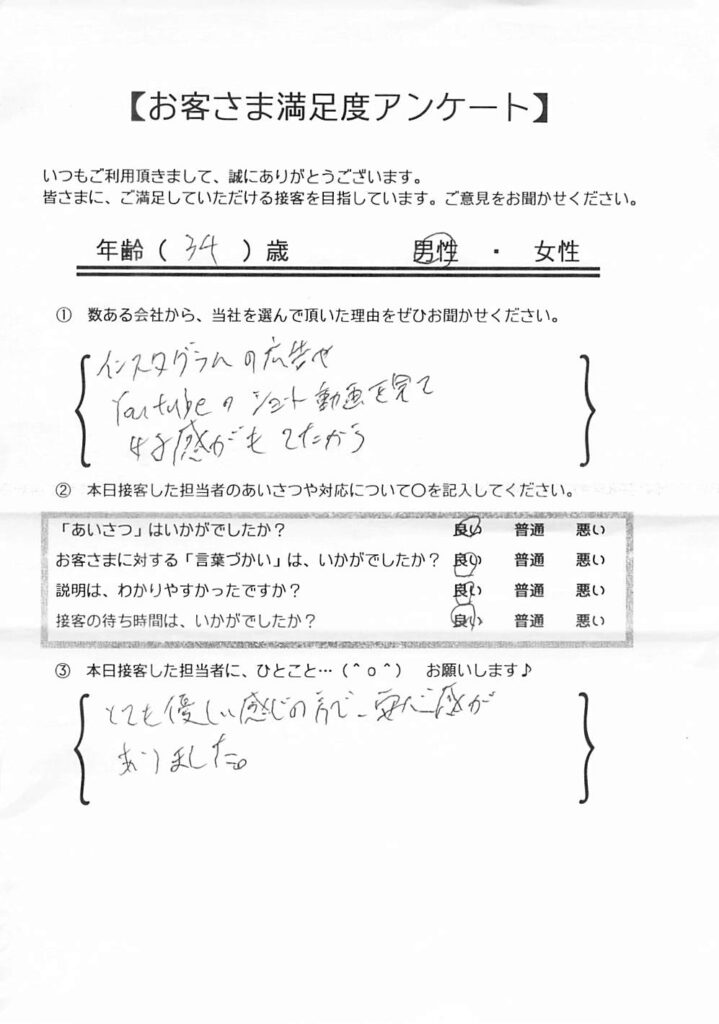 【お客さま満足度アンケート】
いつもご利用頂きまして、誠にありがとうございます。
皆さまに、ご満足していただける接客を目指しています。ご意見をお聞かせください。
年齢（ 34 ）歳 男性 ・ 女性
① 数ある会社から、当社を選んで頂いた理由をぜひお聞かせください。
インスタグラムの広告や
Youtubeの ショート動画を見て
好感がもてたから
② 本日接客した担当者のあいさつや対応について〇を記入してください。
「あいさつ」はいかがでしたか？ 良い 普通 悪い
お客さまに対する「言葉づかい」は、いかがでしたか？ 良い 普通 悪い
説明は、わかりやすかったですか？ 良い 普通 悪い
接客の待ち時間は、いかがでしたか？ 良い 普通 悪い
③ 本日接客した担当者に、ひとこと…（＾ｏ＾） お願いします♪
とても優しい感じの方で、安心感が
ありました。